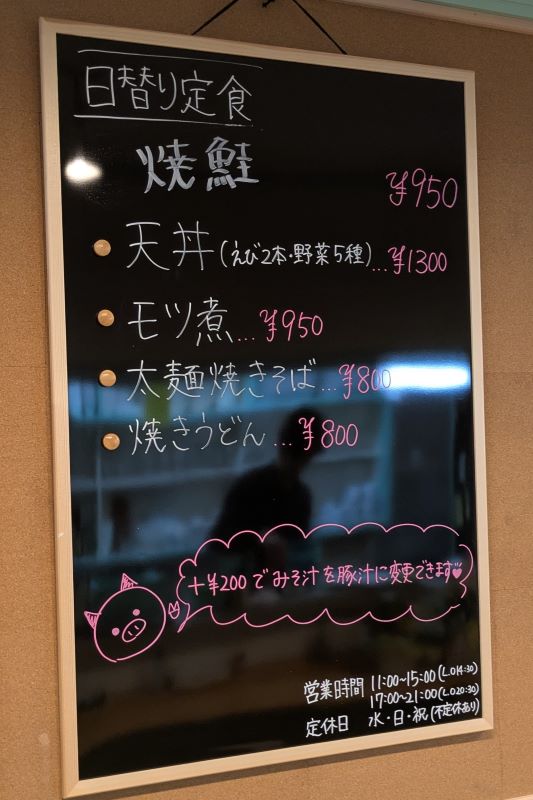 日替り定食
焼鮭
¥950
天丼(えび2本・野菜5種)...¥1300
モツ煮...¥950
太麺焼きそば...¥800
焼きうどん...¥800
+¥200でみそ汁を豚汁に変更できます♥
営業時間 11:00~15:00(L.O14:30)
17:00~21:00(L.O20:30)
定休日 水・日・祝(不定休あり)